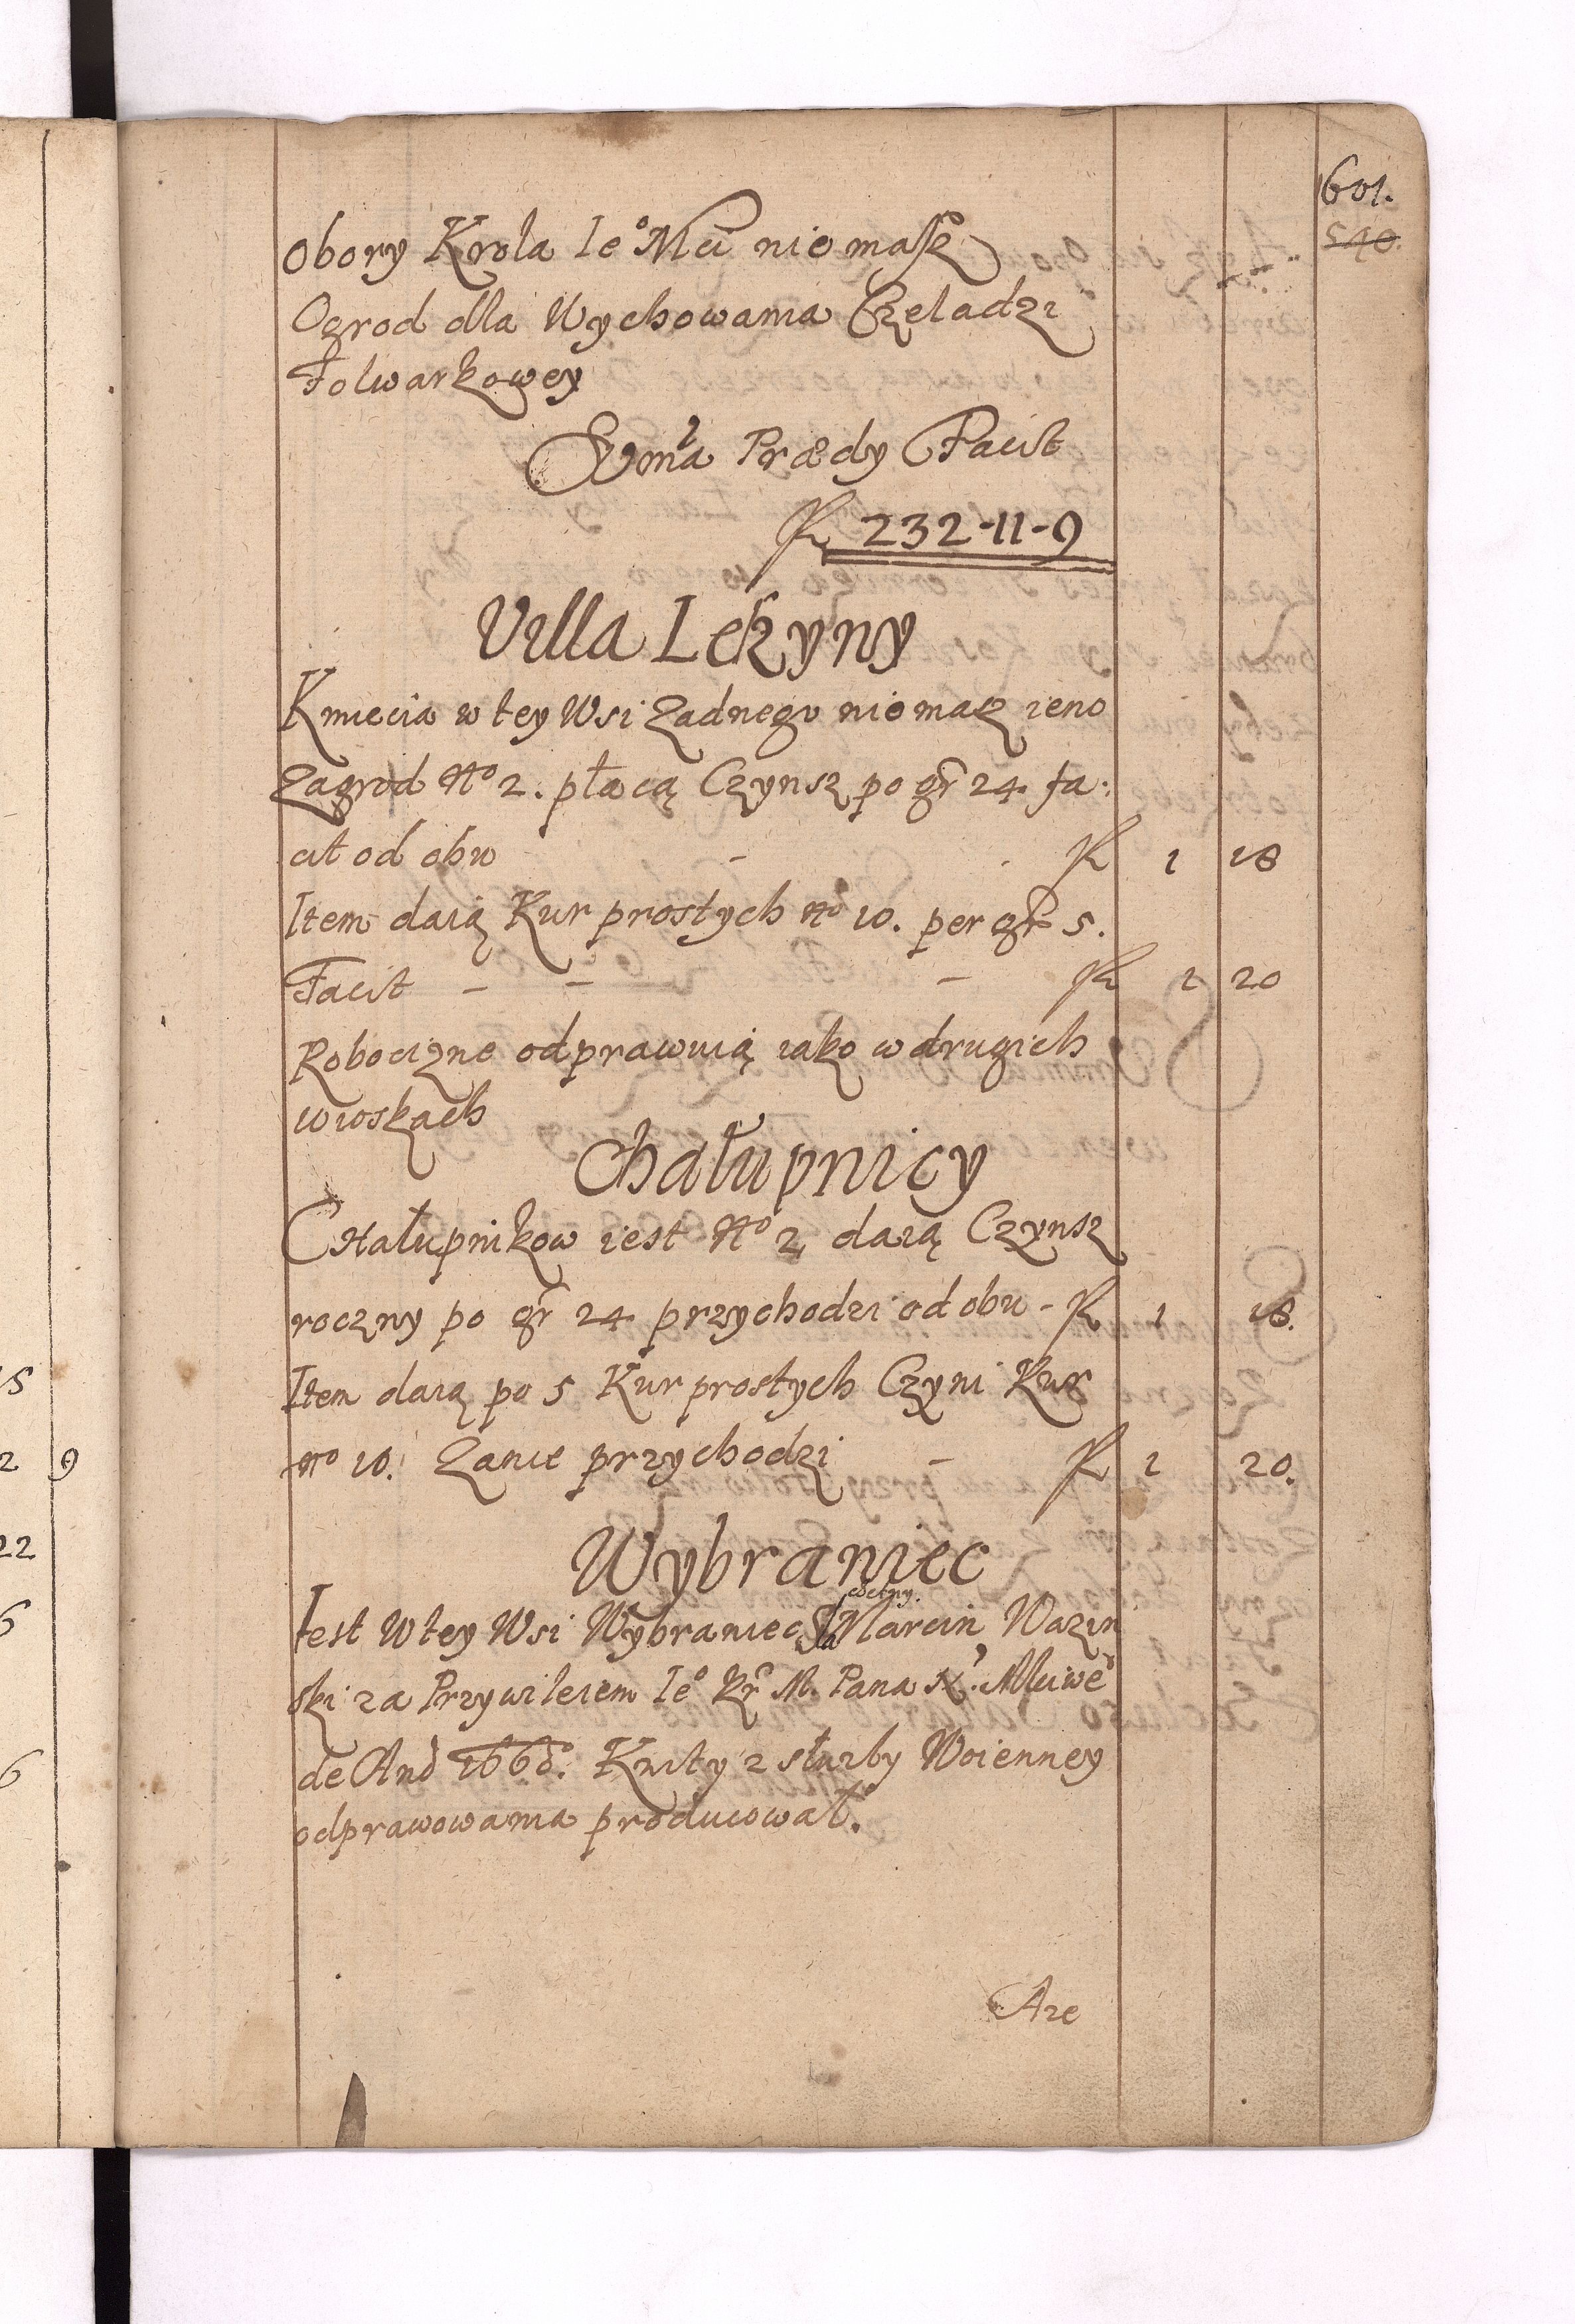 601.
540.
Obory Krola Ieo Mci niemasz
Ogrod dla Wychowania Czeladzi
Folwarkowey
Summa Prædy Facit
R 232-11-9
Villa Lekyny
Kmiecia w tey Wsi Zadnego niemasz ieno
Zagrod No 2. płacą Czynsz po gr 24 fa:
cit od obu - R 1 18
Item daią Kur prostych No 10. per gr 5.
Facit - - - R 1 20
Roboczizne odprawuią iako w drugich
wioskach
Chałupnicy
Chałupnikow iest No 2, daią Czynsz
roczny po gr 24 przychodzi od obu - R 1 18.
Item daią po 5 Kur prostych Czyni Kur
No 10. Zanie przychodzi - R 1 20.
Wybraniec
Iest w tey Wsi Wybraniec Marcin Wazin
ski za Przywileiem Ieo Kr M. Pana N.
de Ano 1668. Kwity z służby Woienney
odprawowania producował.
Aże
15
2 9
22
6
6